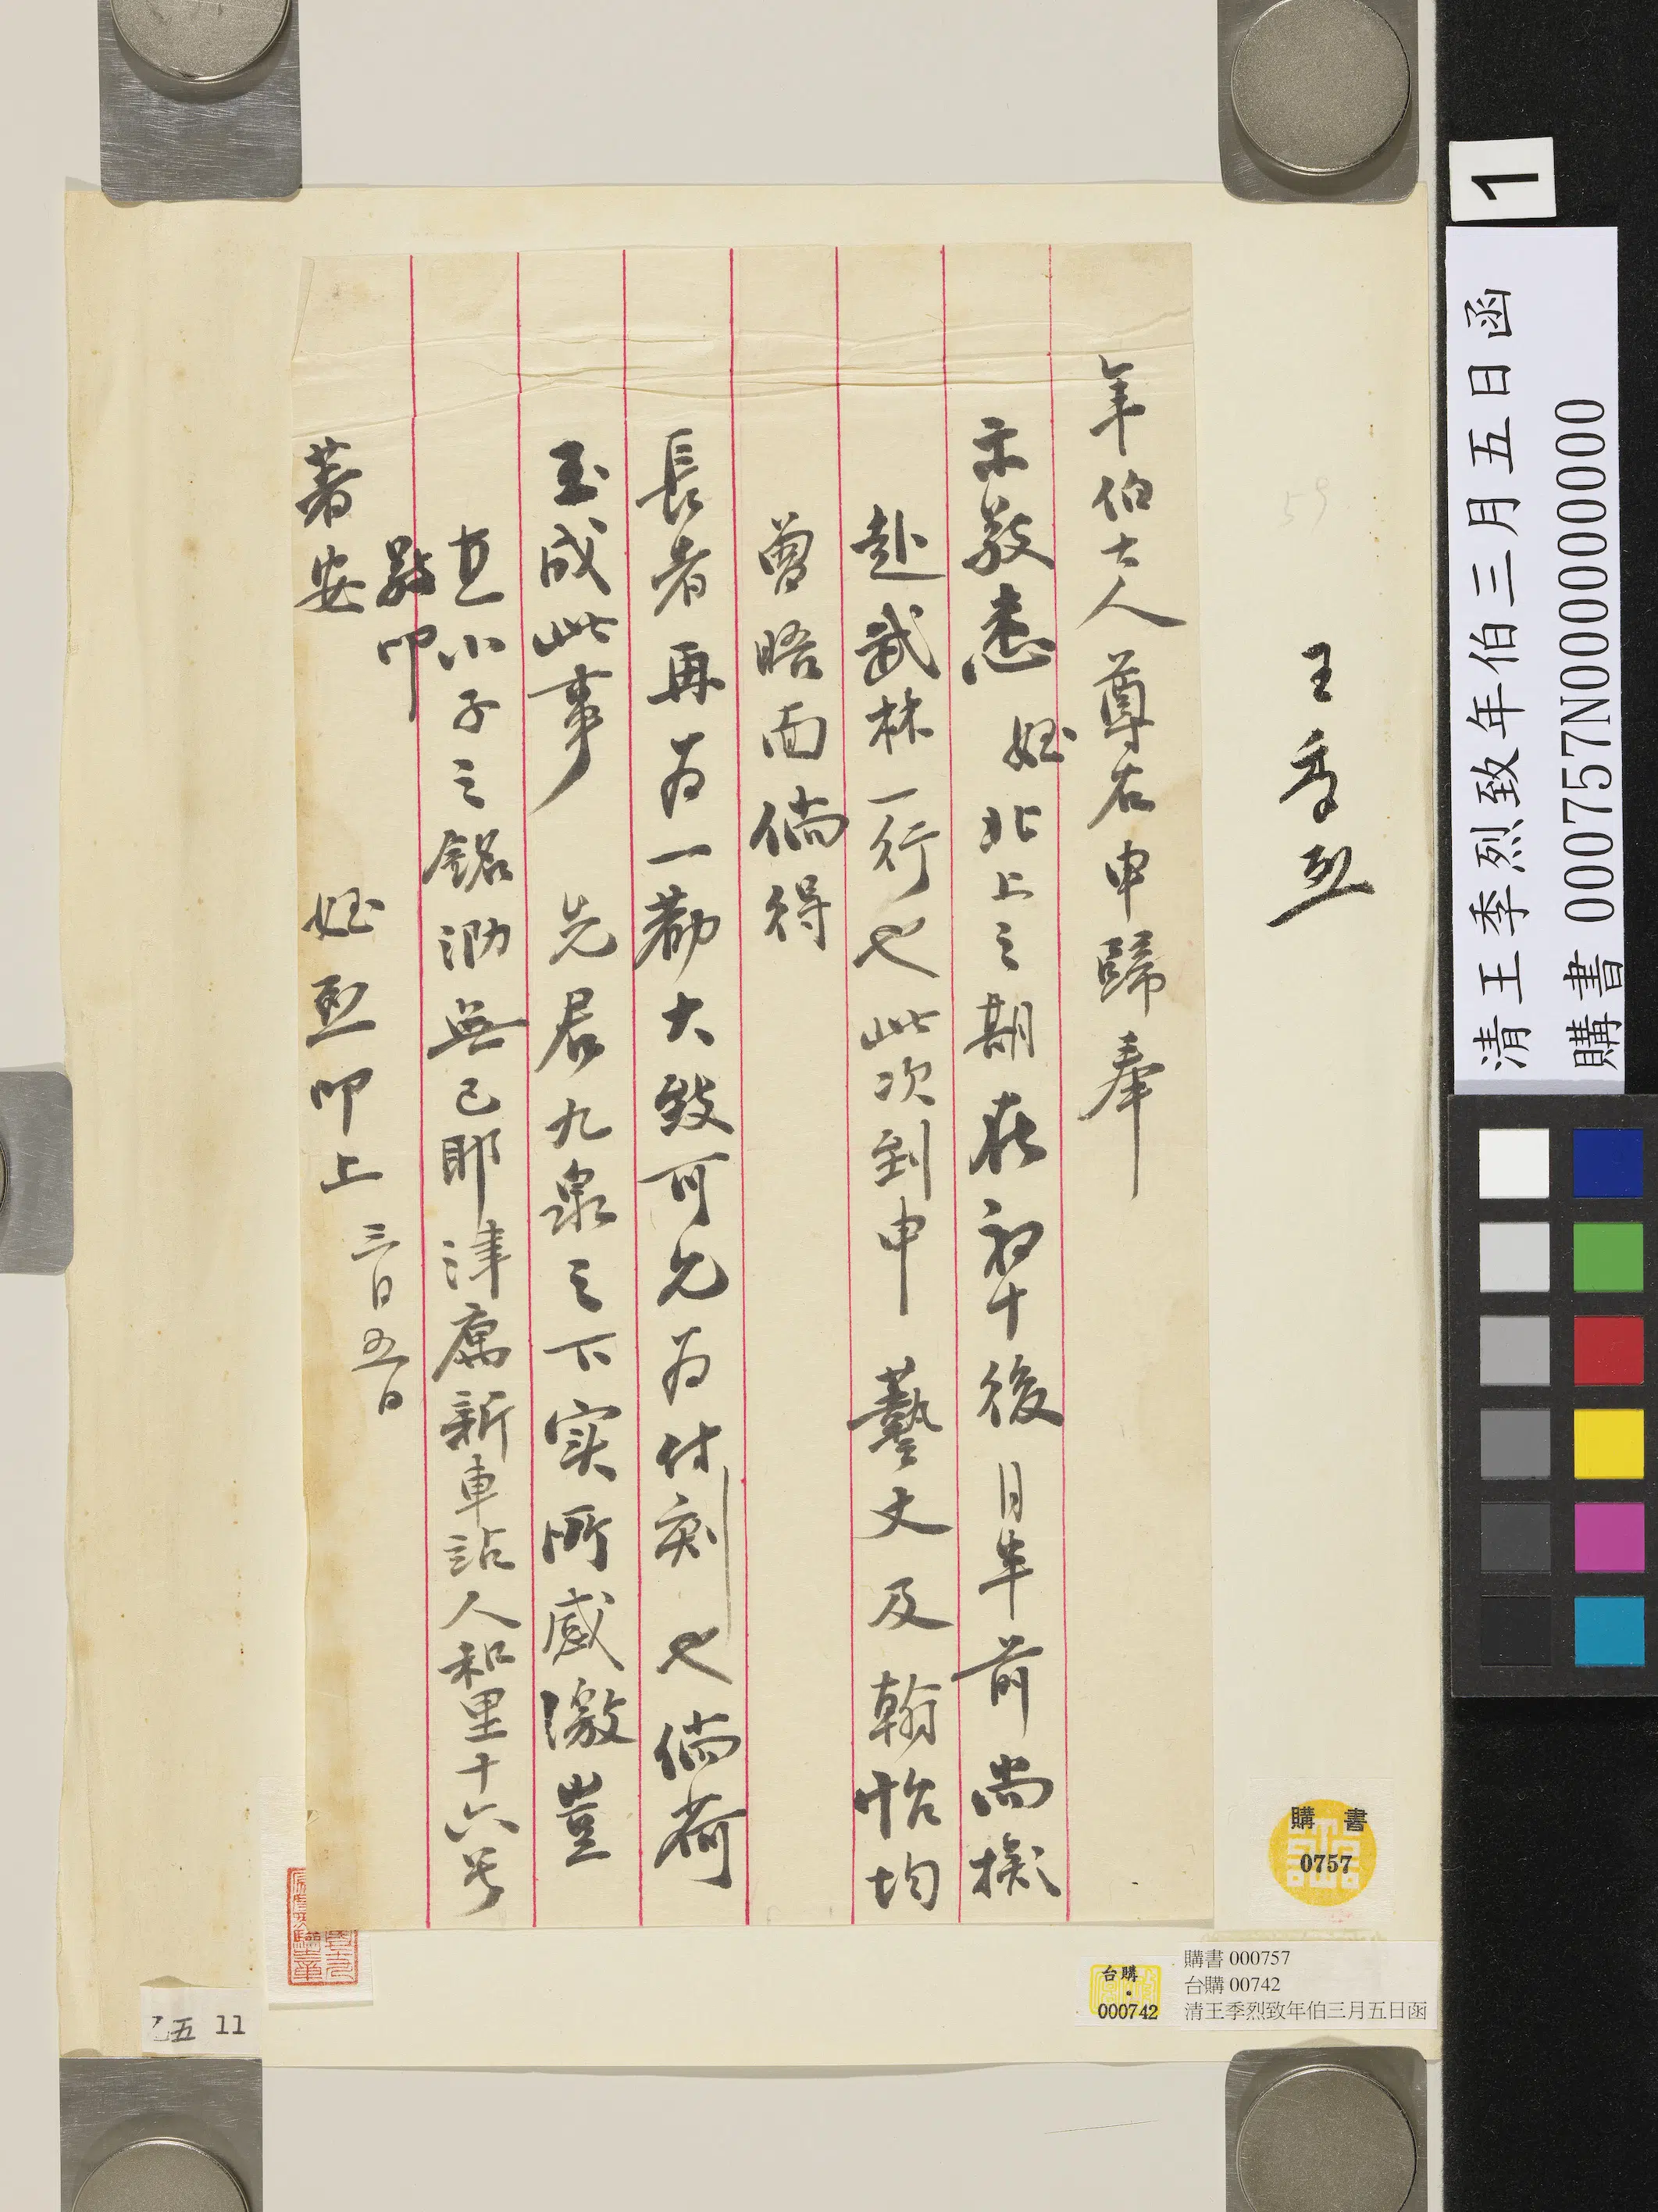 王季烈
年伯大人尊右申歸奉
示敬悉姪北上之期在初十後月半前尚擬
赴武林一行也此次到申藝文及翰怡均
曾晤面倘得
長者再為一勸大致可允為付刻也倘荷
玉成此事先君九泉之下实所感激豈
直小子之銘泐無已耶津寓新車站人和里十六号
敬叩
著安
姪烈叩上三月五日
59
購書
0757
台購
000742
購書 000757
台購 00742
清王季烈致年伯三月五日函
乙五 11
1
清王季烈致年伯三月五日函
購書 000757N000000000